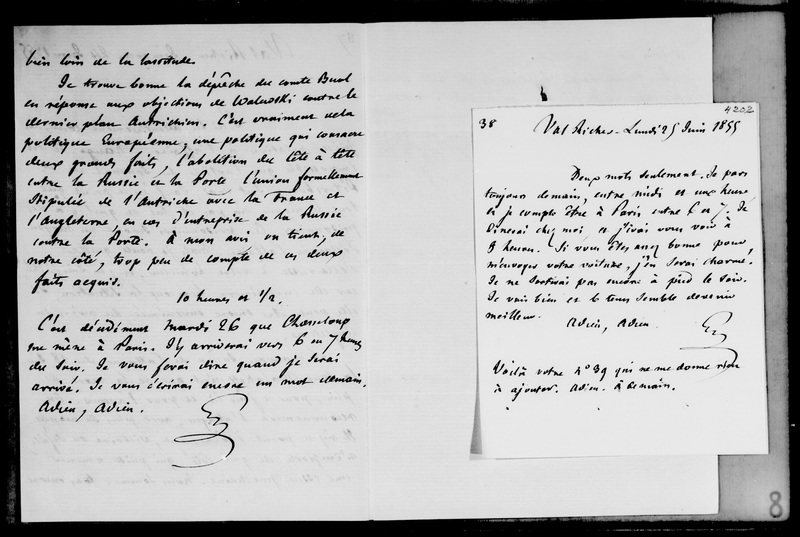 bien loin de la lassitude.
Je trouve bonne la dépêche du comte Buol
en réponse aux objections de Walewski contre le
dernier plan Autrichien. C'est vraiment de la
politique Européenne, une politique qui consacre
deux grands faits, l'abolition du tête à tête
entre la Russie et la Porte l'union formellement
stipulée de l'Autriche avec la France et
l'Angleterre, en cas d'entreprise de la Russie
contre la Porte. À mon avis on tient, de
notre côté, trop peu de compte de ces deux
faits acquis.
10 heures et 1/2.
C'est décidément mardi 26 que Chasseloup
me mène à Paris. J'y arriverai vers 6 ou 7 heures
du soir. Je vous ferai dire quand je serai
arrivé. Je vous écrirai encore un mot demain.
Adieu, adieu.
4202
38 Val Richer - Lundi 25 Juin 1855
Deux mots seulement. Je pars
toujours demain, entre midi et une heure
et je compte être à Paris entre 6 et 7. Je
dinerai chez moi, et j'irai vous voir à
9 heures. Si vous êtes assez bonne pour
m'envoyer votre voiture, j'en serai charmé.
Je ne sortirai pas encore à pied le soir.
Je vais bien et le tems semble devenir
meilleur.
Adieu, Adieu.
Voilà votre n° 39 qui ne me donne rien
à ajouter. Adieu. À demain.
8